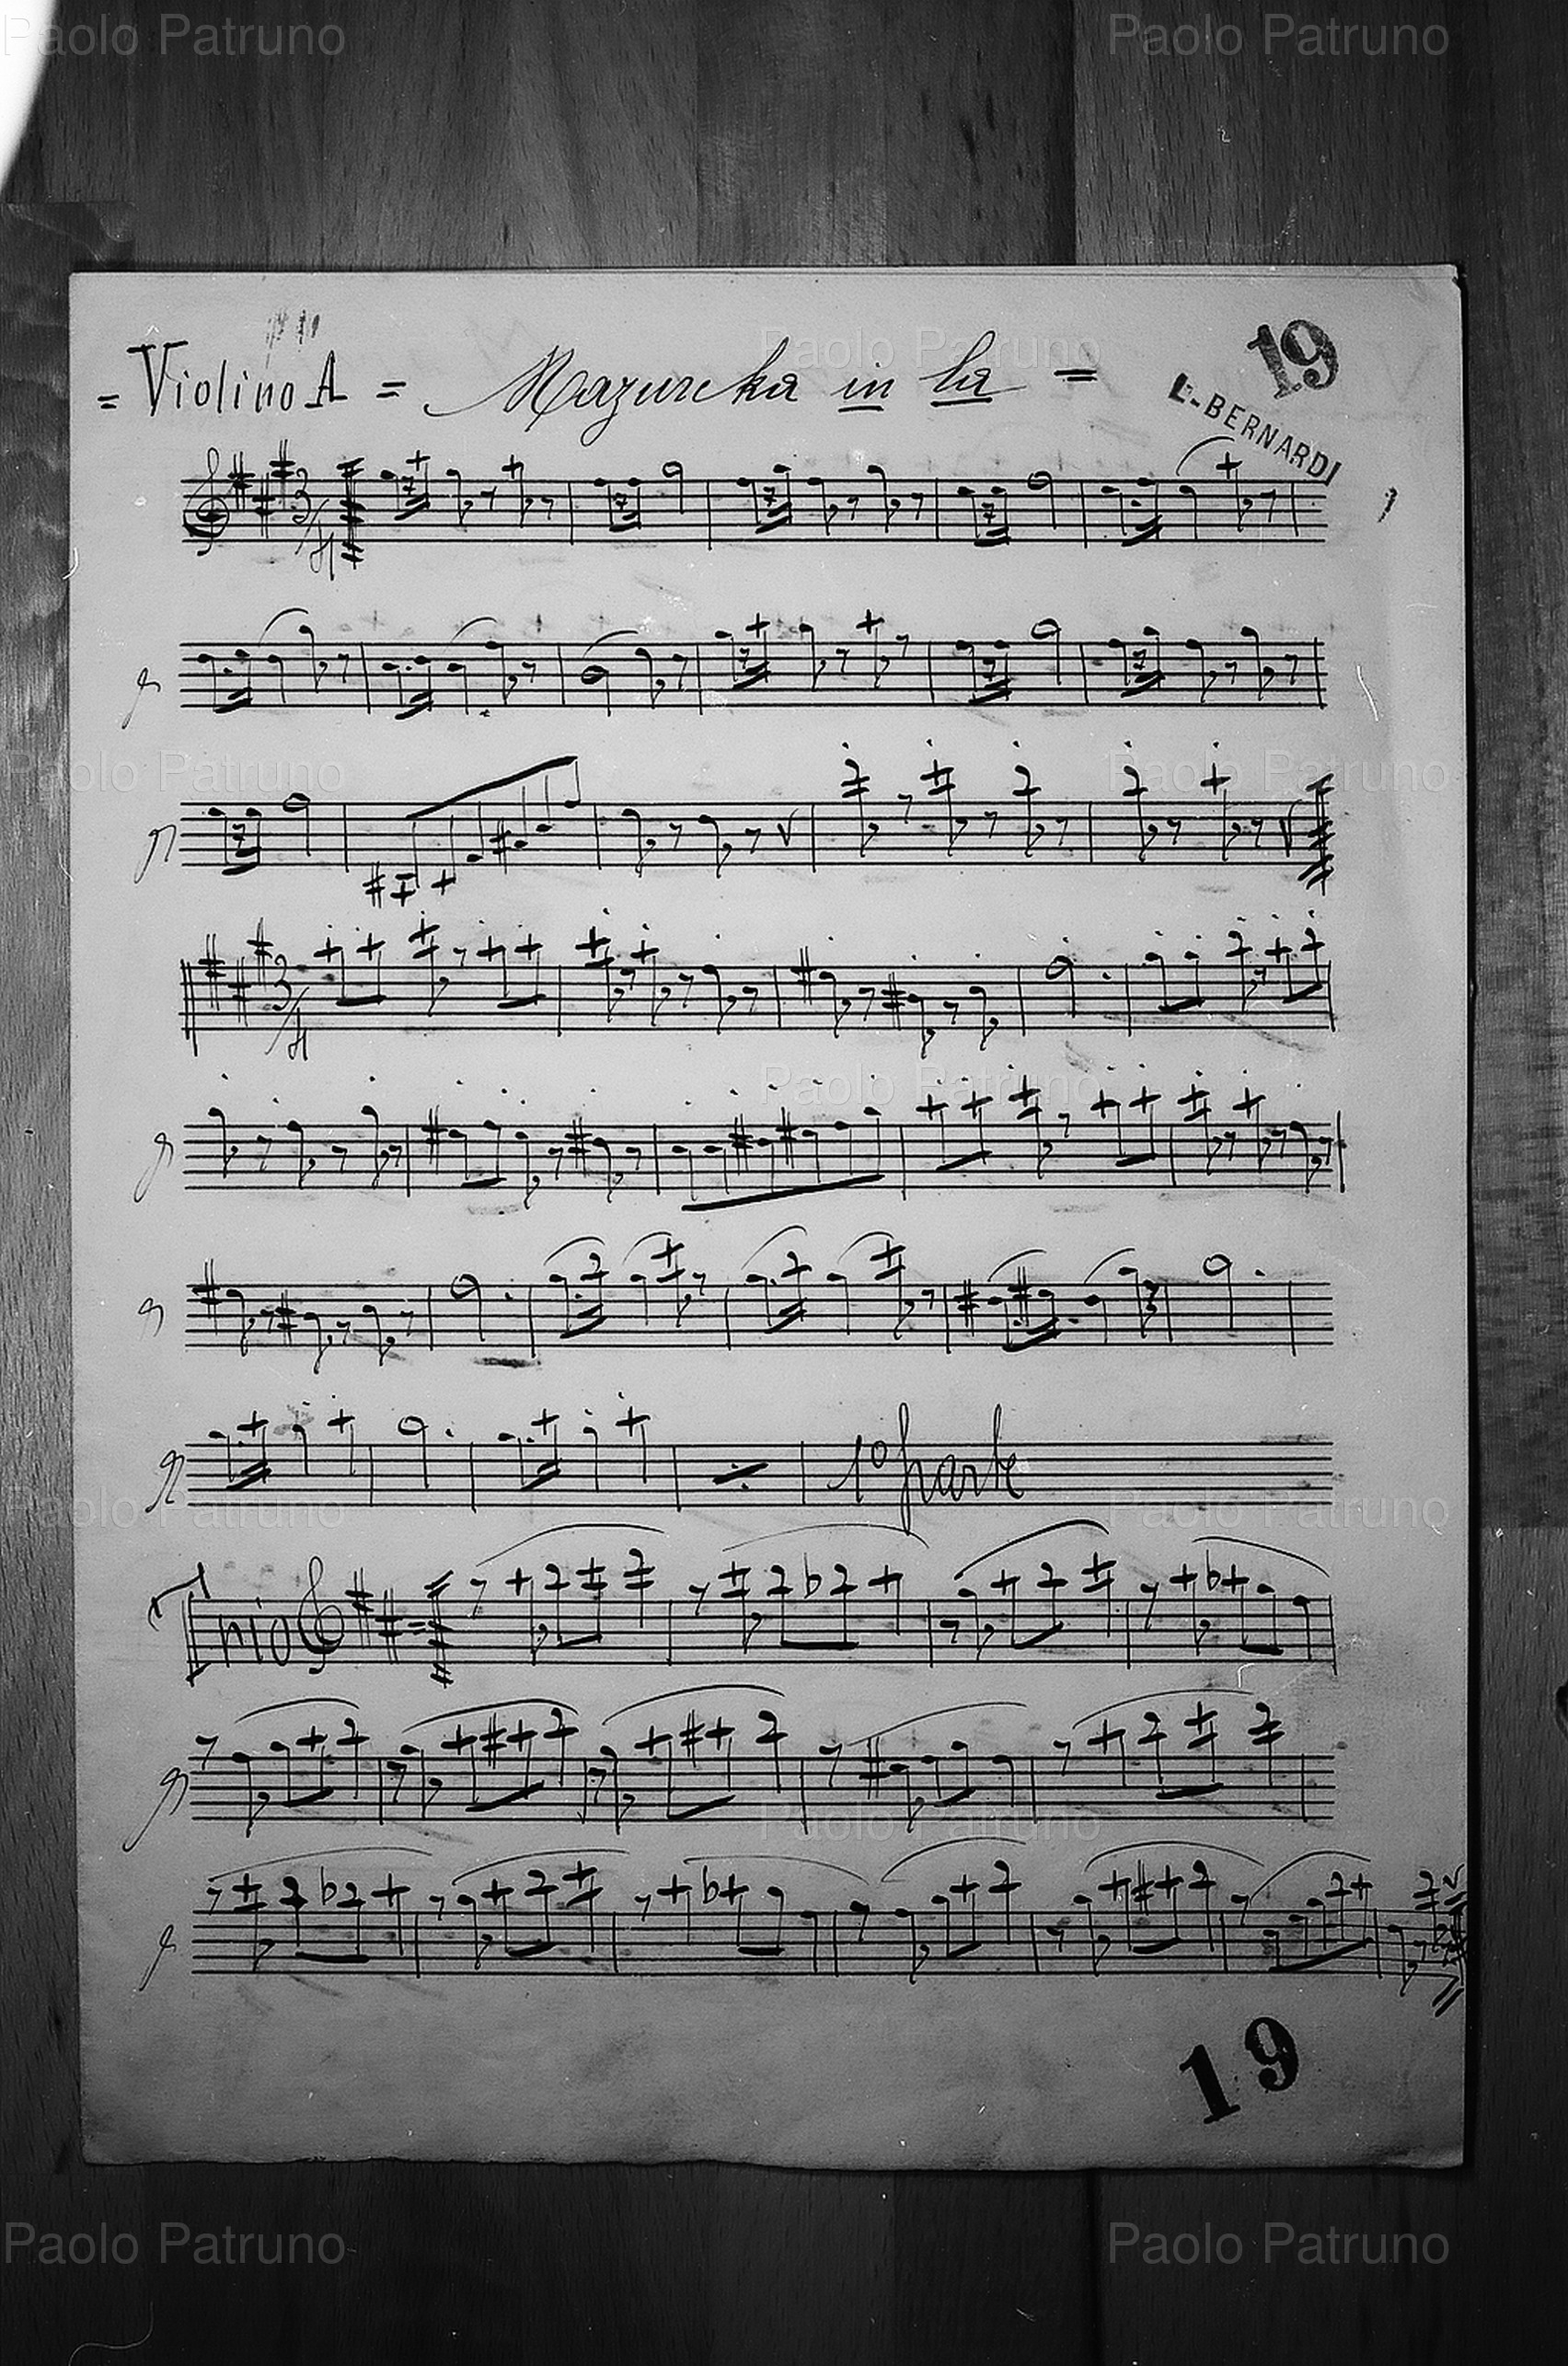 Paolo Patruno Paolo Patruno
19
= Violino A = Mazurcka in la =
Paolo Patruno
L. BERNARDI
3/4
Paolo Patruno Paolo Patruno
3/4
Paolo Patruno
1º parte
Paolo Patruno Paolo Patruno
Trio
Paolo Patruno
19
Paolo Patruno Paolo Patruno